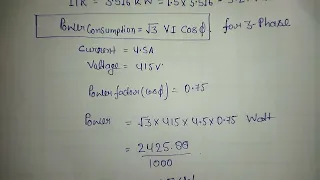 Power Consumption = √3 VI Cosφ for 3-Phase
Current = 4.5A
Voltage = 415V
Power factor (cosφ) = 0.75
Power = √3 × 415 × 4.5 × 0.75 Watt
= 2425.99
1000